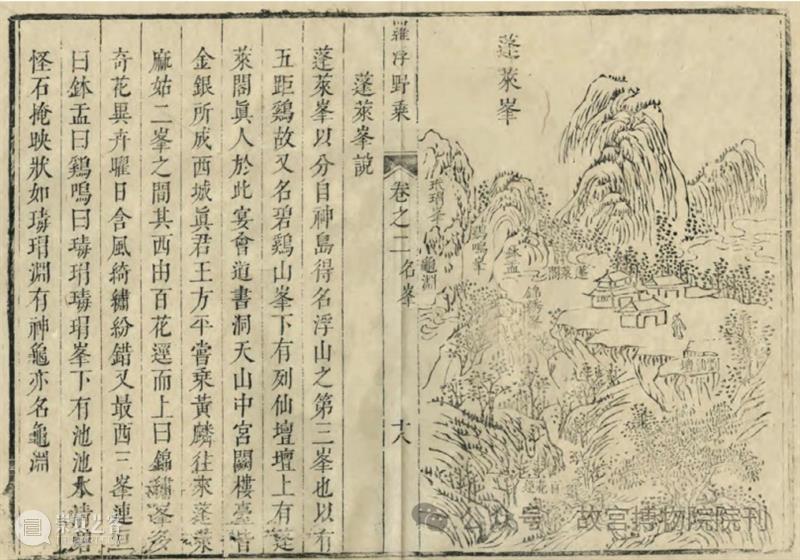 蓬萊峯
蓬萊閣
鉢盂
錦繡峯
鷄鳴峯
瑁峯
龜淵
花逕
羅浮野乗
卷之二
名峯
十八
蓬萊峯說
蓬萊峯以分自神島得名浮山之第三峯也以有
五距鷄故又名碧鷄山峯下有列仙壇壇上有蓬
萊閣眞人於此宴會道書洞天山中宮闕樓臺皆
金銀所成西城眞君王方平嘗乘黃麟往來蓬萊
麻姑二峯之間其西由百花逕而上曰錦繡峯多
奇花異卉曜日含風綺繡紛錯又最西三峯連亘
曰鉢盂曰鷄鳴曰瑇瑁瑇瑁峯下有池池水
怪石掩映狀如瑇瑁淵有神龜亦名龜淵
公众号 · 故宫博物院院刊